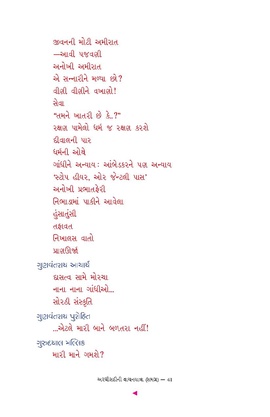 જીવનની મોટી અમીરાત
—આવી પજવણી
અનોખી અમીરાત
એ સન્નારીને મળ્યા છો?
વીણી વીણીને વખાણો!
સેવા
“તમને ખાતરી છે કે..?”
રક્ષણ પામેલો ધર્મ જ રક્ષણ કરશે
દીવાલની પાર
ધર્મની ઓથે
ગાંધીને અન્યાય: આંબેડકરને પણ અન્યાય
‘સ્ટોપ હીયર, ઓર જેન્ટલી પાસ’
અનોખી પ્રભાતફેરી
નિભાડામાં પાકીને આવેલા
હુંસાતુંસી
તફાવત
નિખાલસ વાતો
પ્રાણઊર્જા
ગુણવંતરાય આચાર્ય
દાસત્વ સામે મોરચા
નાના નાના ગાંધીઓ...
સોરઠી સંસ્કૃતિ
ગુણવંતરાય પુરોહિત
...એટલે મારી બાને બળતરા નહીં!
ગુરુદયાલ મલ્લિક
મારી માને ગમશે?
અરધી સદીની વાચનયાત્રા (સમગ્ર) —